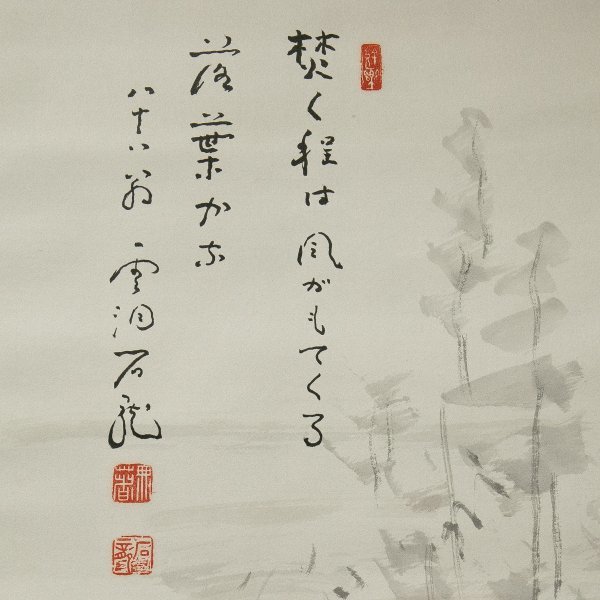 焚く程は風がもてくる
落葉かな
八十八翁 雲洞石龍